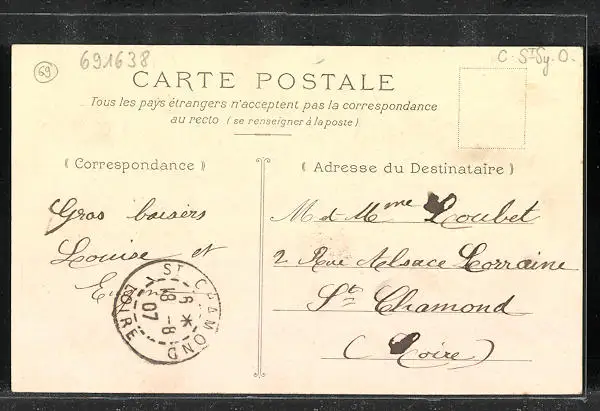 69
691638
C. St Sy. O.
CARTE POSTALE
Tous les pays étrangers n'acceptent pas la correspondance
au recto (se renseigner à la poste)
( Correspondance )
Gros baisers
Louise et
( Adresse du Destinataire )
M et Mme Loubet
2 Rue Alsace Lorraine
St Chamond
(Loire)
ST CHAMOND
6 *
18 -8
07
LOIRE